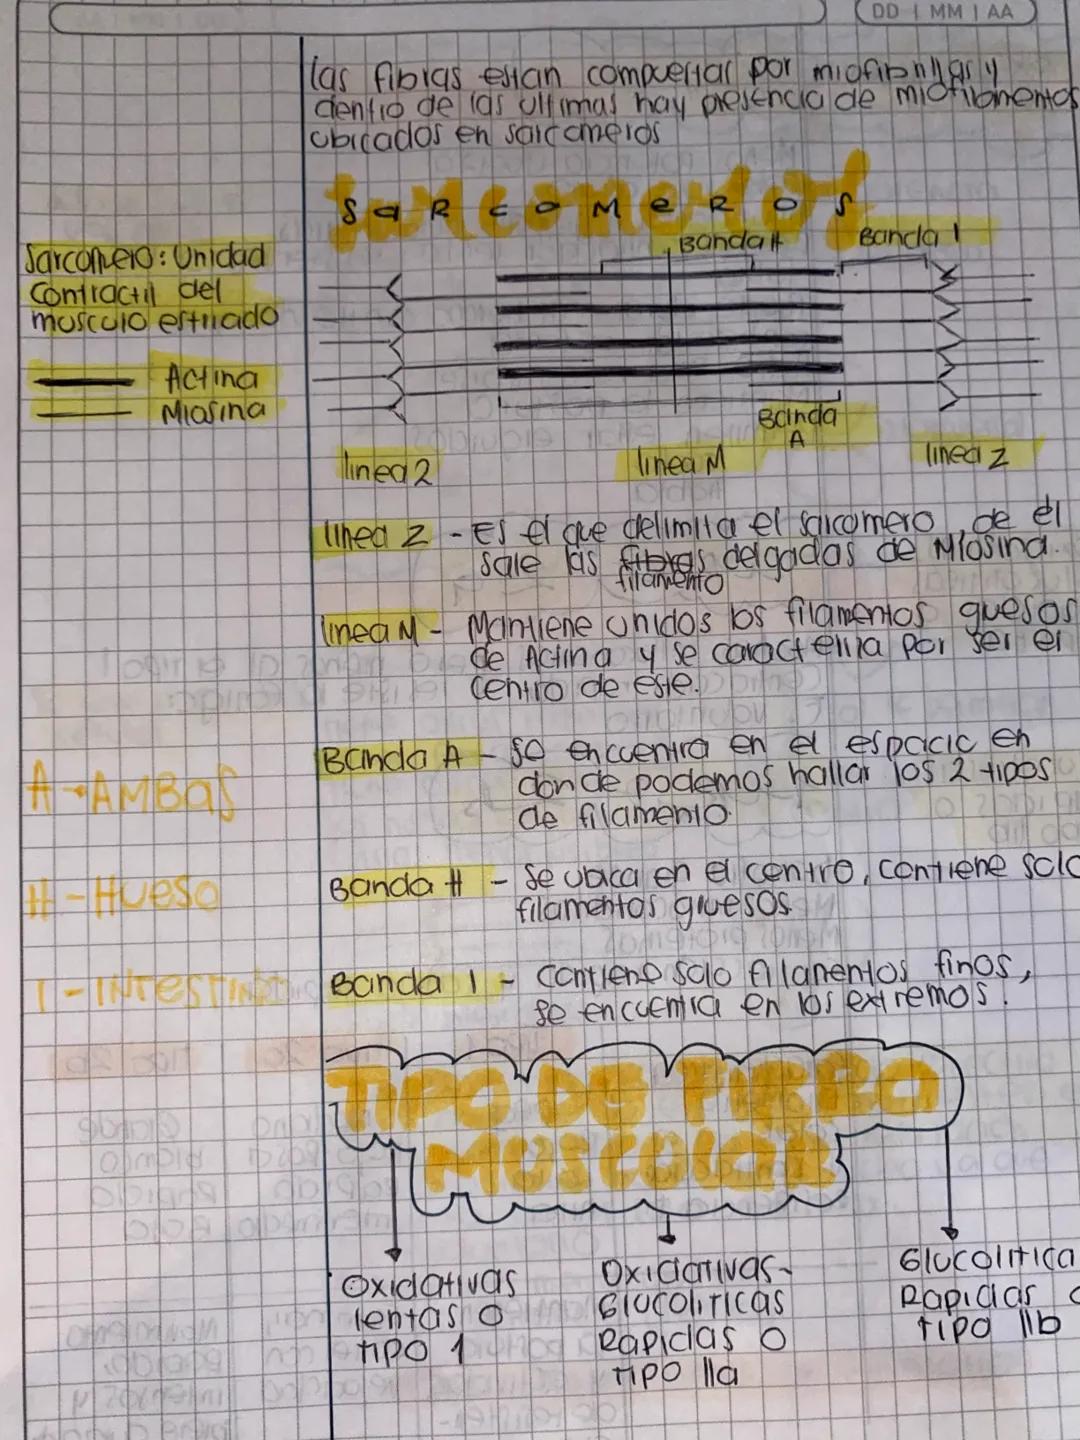 DD | MM | AA
las fibras estan compuestas por miofibrillas y
dentro de las ultimas hay presencia de miofilamentos
ubicados en sarcomeros
Sarcomeros
SaRcoMeROS
Banda H
Banda I
Sarcomero: Unidad
contractil del
musculo estriado
Actina
Miosina
Banda
A
linea Z
linea M
linea Z
linea Z - Es el que delimita el sarcomero, de él
sale las fibras delgadas de Miosina.
filamento
linea M - Mantiene unidos los filamentos gruesos
de Actina y se caracteriza por ser el
centro de este.
Banda A - se encuentra en el espacio en
donde podemos hallar los 2 tipos
de filamento.
A - AMBAS
Banda H - Se ubica en el centro, contiene solo
filamentos gruesos.
H - Hueso
Banda I - contiene solo filamentos finos,
se encuentra en los extremos.
I - INTESTINO
TIPO DE FIBRA
MUSCULAR
Oxidativas
lentas O
TIPO 1
Oxidativas-
Glucoliticas
Rapidas O
TIPO IIa
Glucolitica
Rapidas O
TIPO IIb